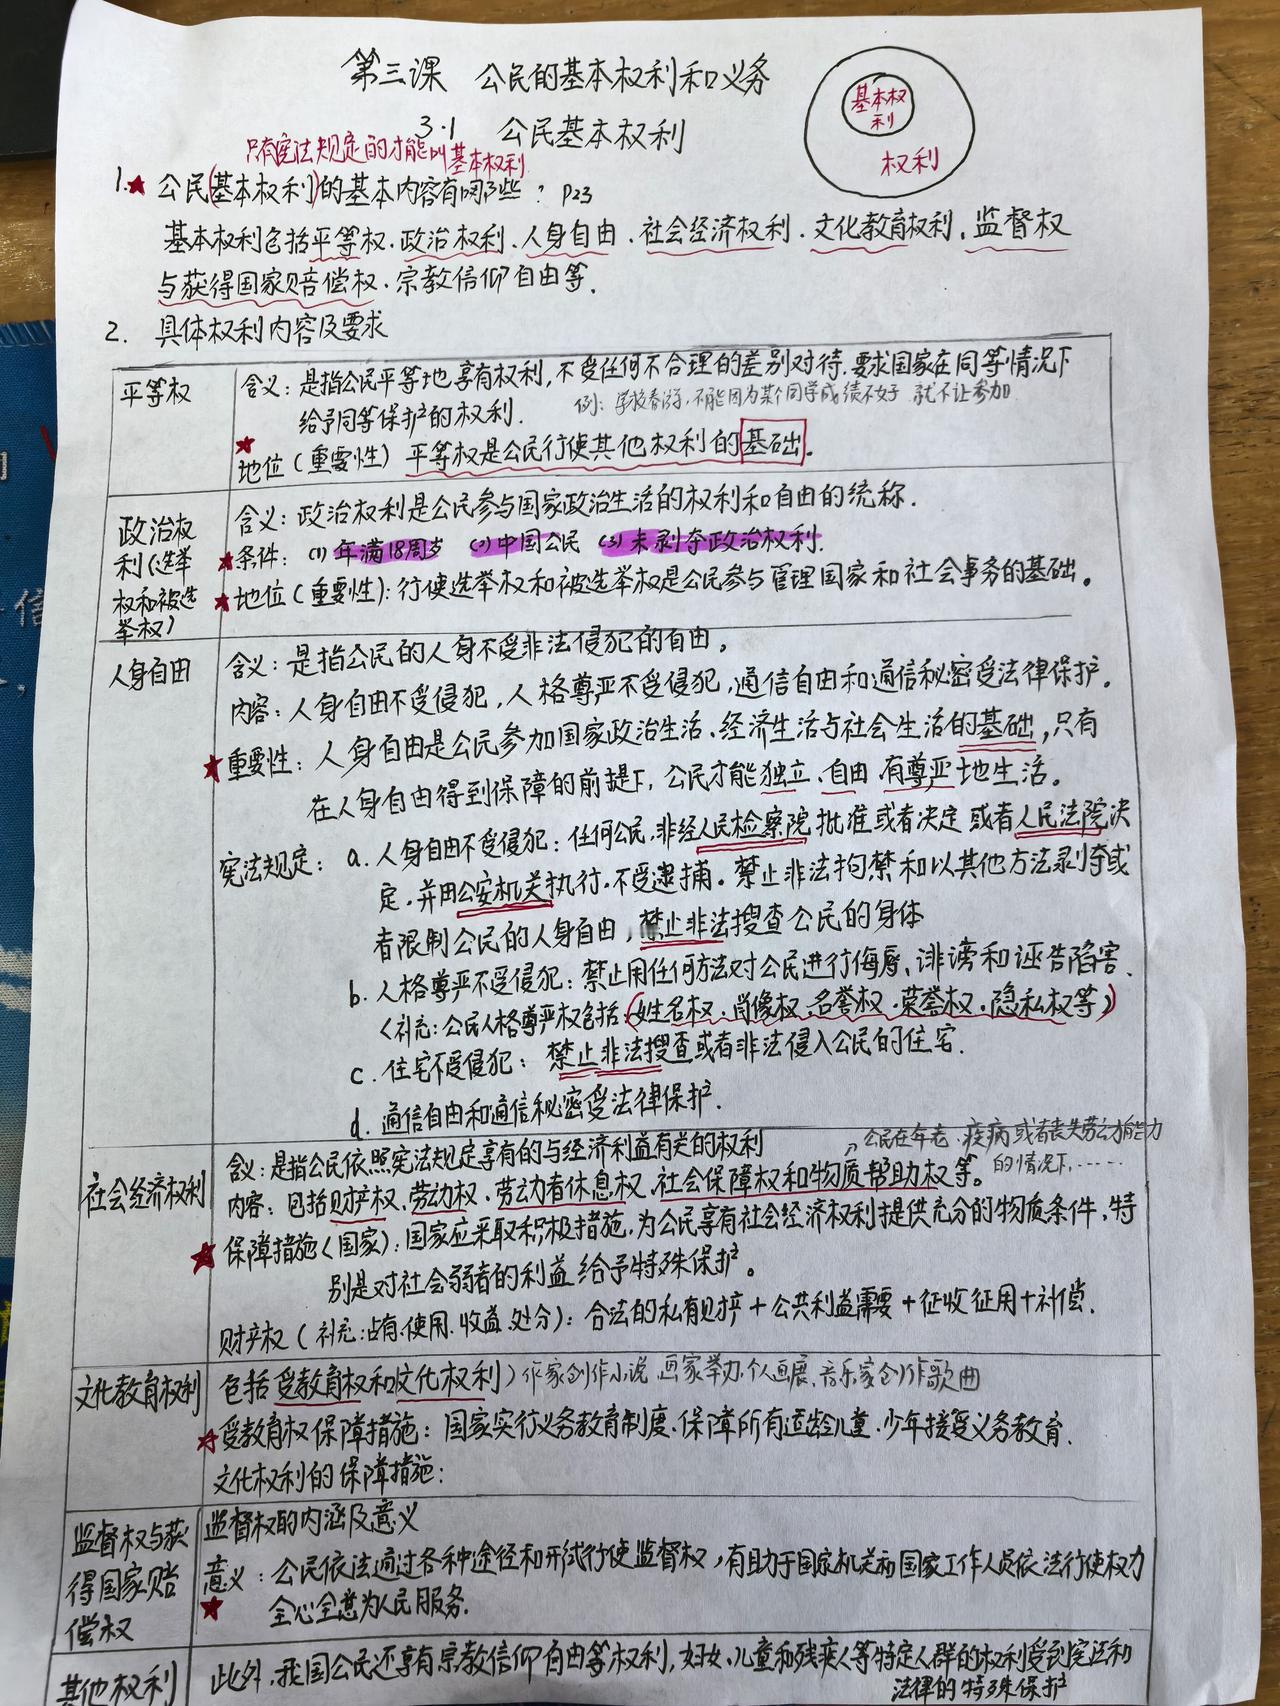 第三课 公民的基本权利和义务
基本权
利
权利
3.1 公民基本权利
只有宪法规定的才能叫基本权利
1.★ 公民(基本权利)的基本内容有哪些? P23
基本权利包括平等权、政治权利、人身自由、社会经济权利、文化教育权利、监督权
与获得国家赔偿权、宗教信仰自由等.
2. 具体权利内容及要求
平等权
含义:是指公民平等地享有权利,不受任何不合理的差别对待,要求国家在同等情况下
给予同等保护的权利.
例:学校春游,不能因为某个同学成绩不好 就不让参加
★地位(重要性) 平等权是公民行使其他权利的基础.
政治权
利(选举
权和被选
举权)
含义:政治权利是公民参与国家政治生活的权利和自由的统称.
★条件: (1) 年满18周岁 (2) 中国公民 (3) 未剥夺政治权利.
★地位(重要性):行使选举权和被选举权是公民参与管理国家和社会事务的基础。
人身自由
含义:是指公民的人身不受非法侵犯的自由。
内容:人身自由不受侵犯,人格尊严不受侵犯,通信自由和通信秘密受法律保护.
★重要性:人身自由是公民参加国家政治生活、经济生活与社会生活的基础,只有
在人身自由得到保障的前提下,公民才能独立、自由、有尊严地生活。
宪法规定: a.人身自由不受侵犯:任何公民,非经人民检察院批准或者决定或者人民法院决
定,并由公安机关执行,不受逮捕。禁止非法拘禁和以其他方法剥夺或
者限制公民的人身自由,禁止非法搜查公民的身体
b.人格尊严不受侵犯:禁止用任何方法对公民进行侮辱、诽谤和诬告陷害.
(补充:公民人格尊严权包括(姓名权、肖像权、名誉权、荣誉权、隐私权等)
c.住宅不受侵犯: 禁止非法搜查或者非法侵入公民的住宅.
d.通信自由和通信秘密受法律保护.
社会经济权利
含义:是指公民依照宪法规定享有的与经济利益有关的权利
公民在年老、疾病或者丧失劳动能力
的情况下,……
内容:包括财产权、劳动权、劳动者休息权、社会保障权和物质帮助权等。
★保障措施(国家):国家应采取积极措施,为公民享有社会经济权利提供充分的物质条件,特
别是对社会弱者的利益给予特殊保护。
财产权(补充:占有、使用、收益、处分):合法的私有财产+公共利益需要+征收征用+补偿.
文化教育权利
包括受教育权和文化权利) 作家创作小说 画家举办个人画展、音乐家创作歌曲
★受教育权保障措施:国家实行义务教育制度、保障所有适龄儿童、少年接受义务教育.
文化权利的保障措施:
监督权与获
得国家赔
偿权
监督权的内涵及意义
★意义:公民依法通过各种途径和形式行使监督权,有助于国家机关和国家工作人员依法行使权力
全心全意为人民服务.
其他权利
此外,我国公民还享有宗教信仰自由等权利,妇女、儿童和残疾人等特定人群的权利受到宪法和
法律的特殊保护